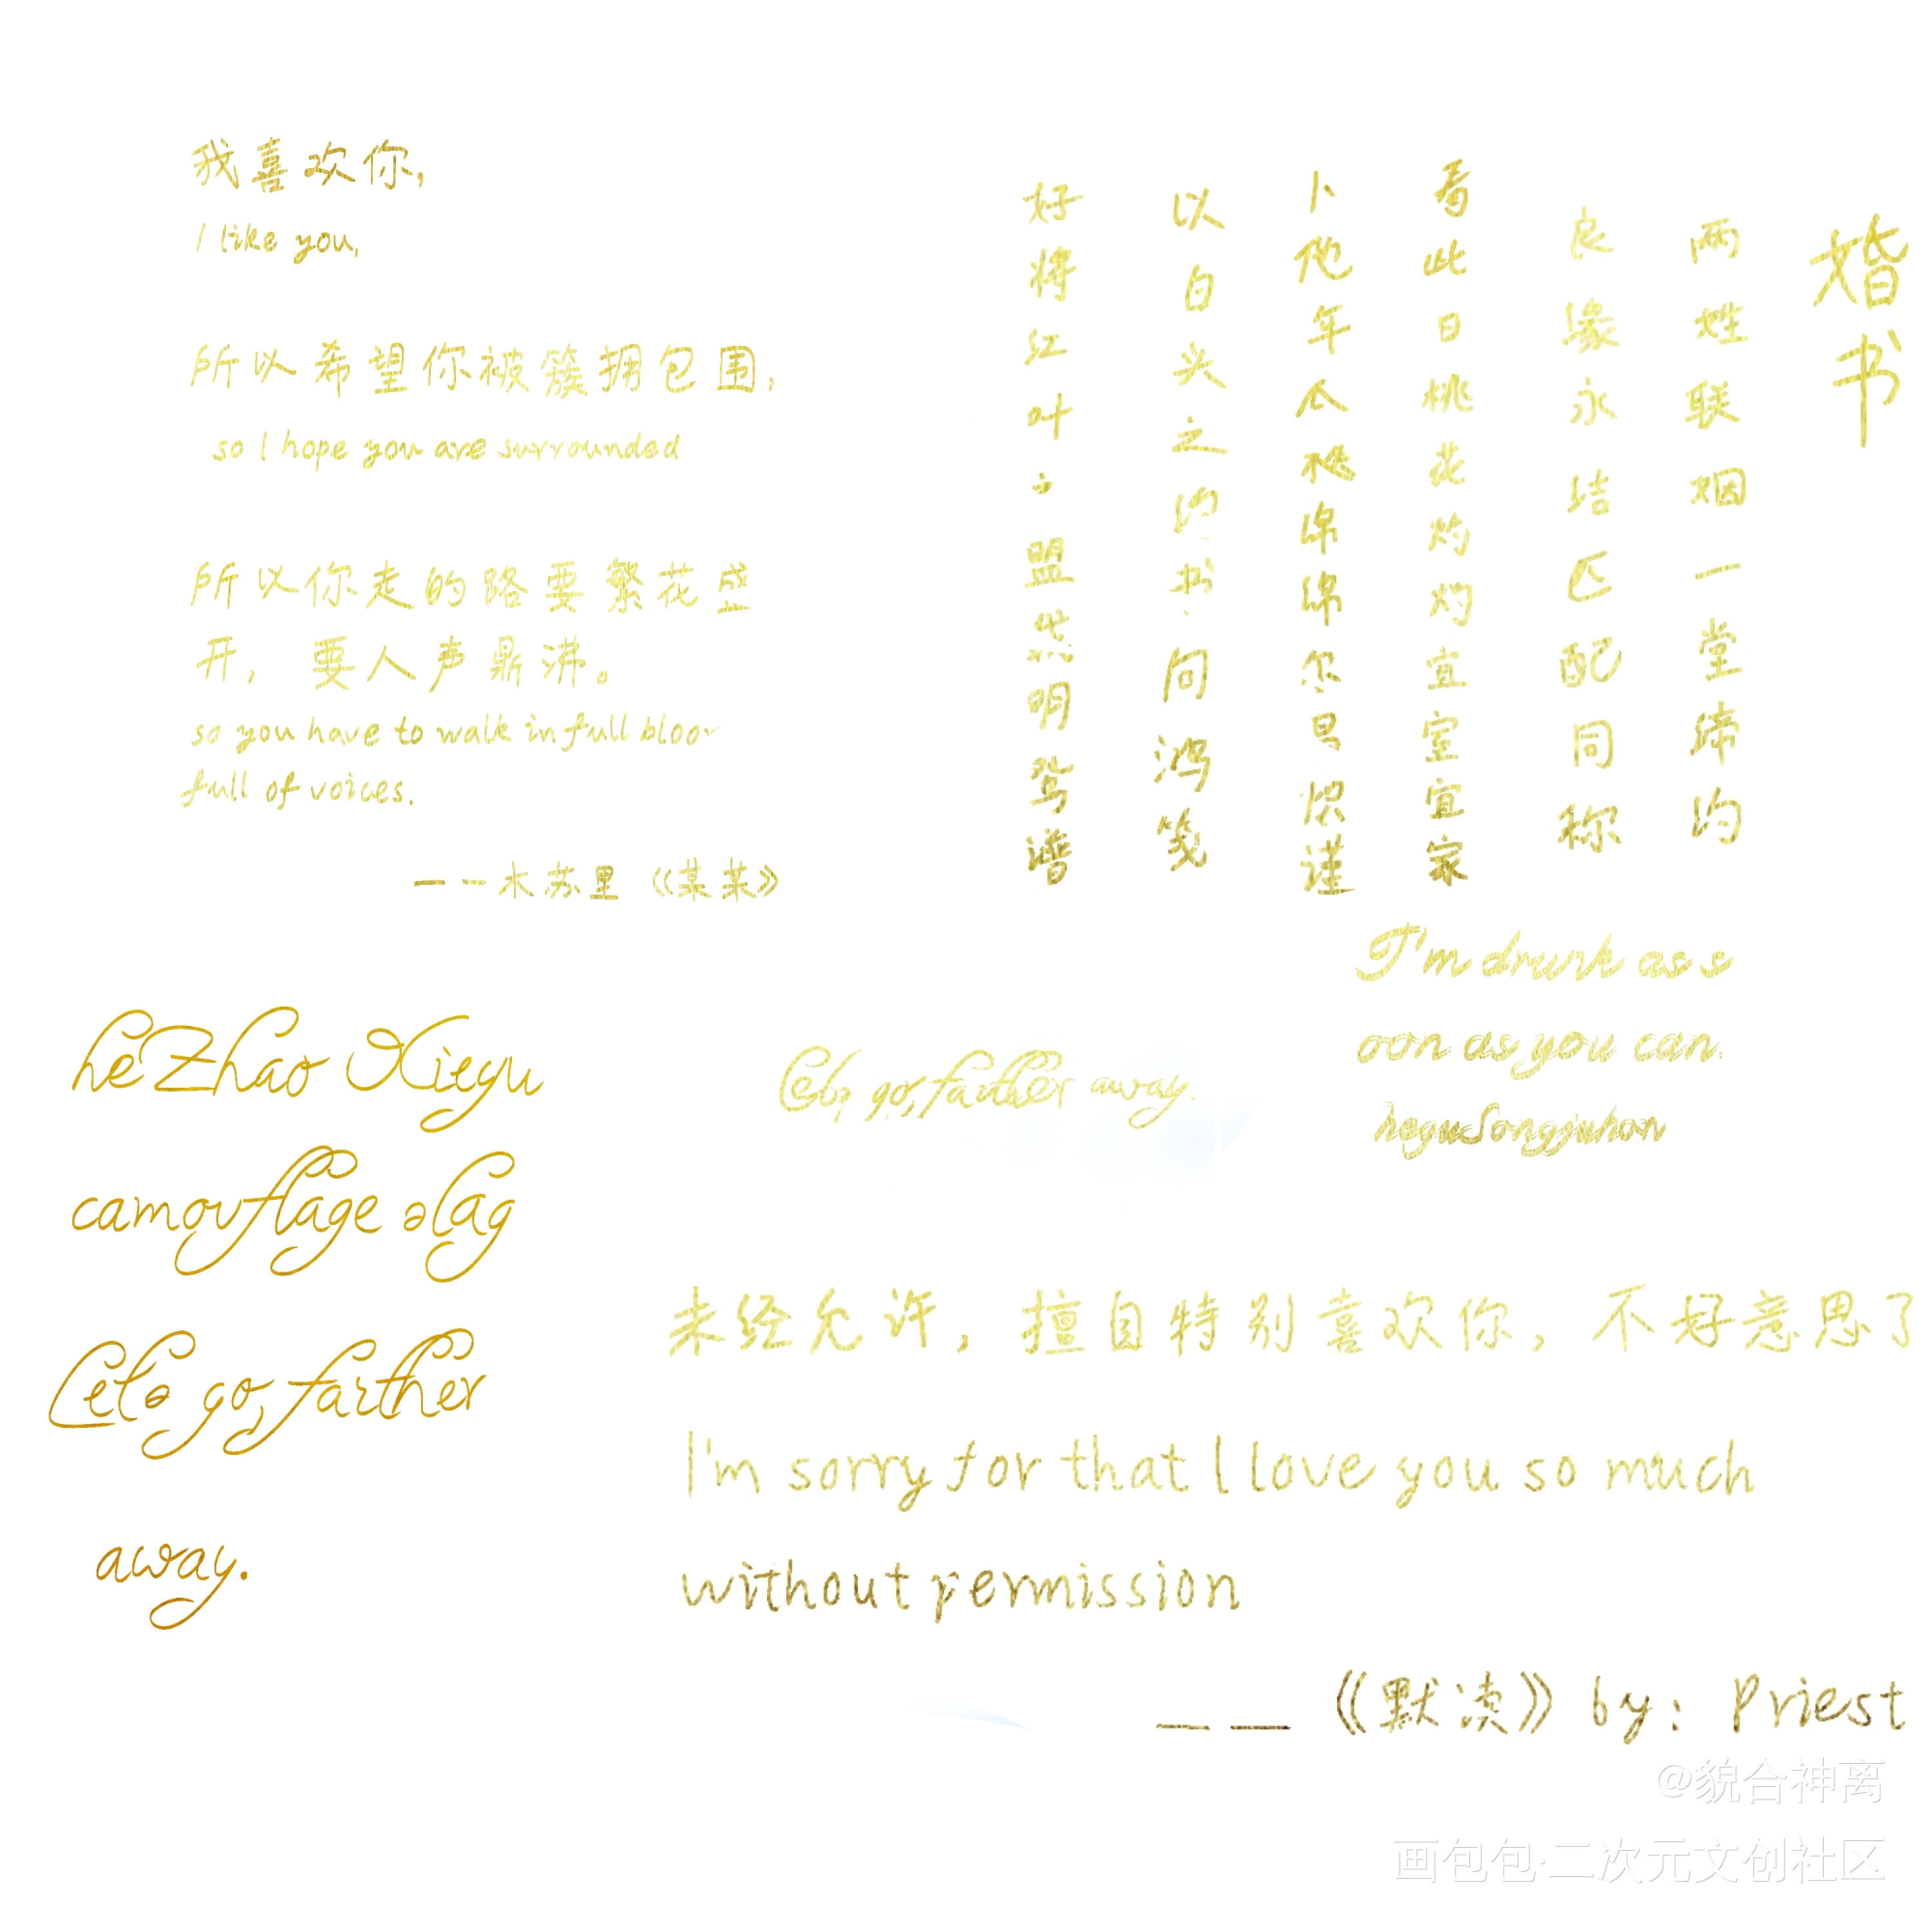 我喜欢你,
I like you,
所以希望你被簇拥包围,
so I hope you are surrounded
所以你走的路要繁花盛
开, 要人声鼎沸。
so you have to walk in full bloor
full of voices.
——木苏里《某某》
婚书
两姓联姻一堂缔约
良缘永结匹配同称
看此日桃花灼灼宜室宜家
卜他年瓜瓞绵绵尔昌炽谨
以白头之约书向鸿笺
好将红叶之盟载明鸳谱
I'm drunk as s
oon as you can.
hegusongjuhan
heZhao Xieyu
camouflage
Lets go, farther
away.
Lets go, farther away.
未经允许, 擅自特别喜欢你, 不好意思了
I'm sorry for that I love you so much
without permission
——《默读》by: Priest
@貌合神离
画包包·二次元文创社区